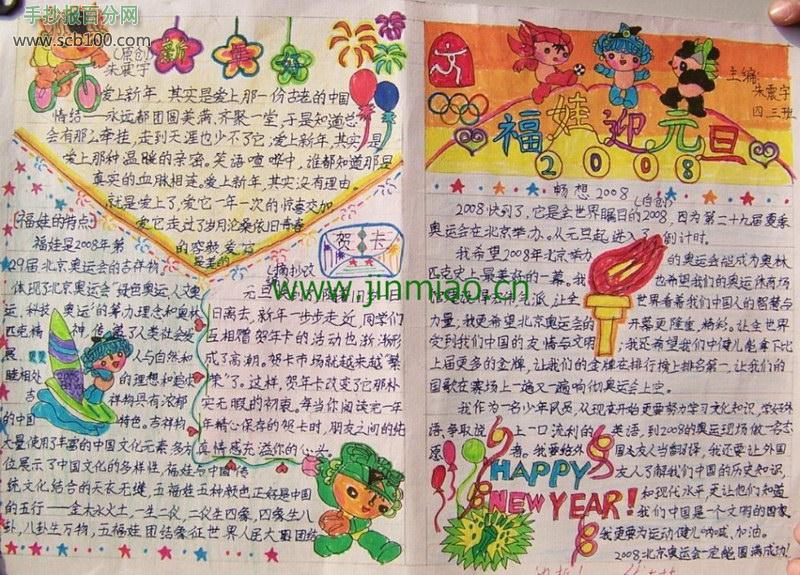 手抄报百分网
www.scb100.com
(原创)
朱震宇
新年好
爱上新年,其实是爱上那一份古老的中国
情结——永远都团圆美满,齐聚一堂,于是知道总
会有那么牵挂,走到天涯也少不了它,爱上新年,其实是
爱上那种温暖的亲密,笑语喧哗中,谁都知道那是
真实的血脉相连。爱上新年,其实没有理由。
就是爱上了,爱它一年一次的惊喜交加
爱它走过了岁月沧桑依旧青春
的容颜,爱它
福娃的特点
福娃是2008年第
29届北京奥运会的吉祥物
体现了北京奥运会"绿色奥运、人文奥
运,科技奥运"的筹办理念和奥林
匹克精神,传递了人类社会发
展
人与自然和
睦相处
的理想和
吉
祥物具有浓郁
的中国
特色。吉祥物
大量使用了丰富的中国文化元素,多方
位展示了中国文化的多样性,福娃与中国传
统文化结合的天衣无缝,五福娃五种颜色正好是中国
的五行——金木水火土,一生二仪,二仪生四象,四象生八
卦,八卦生万物,五福娃团结象征世界人民大团结
贺卡
(摘抄改
元旦
旧离去,新年一步步走近,同学们
互相赠贺年卡的活动也渐渐形
成了高潮。贺卡市场就越来越"繁
荣"了。这样,贺年卡改变了它那朴
实无暇的初衷。每当你阅读完一年
年精心保存的贺卡时,朋友之间的纯
真情感充溢你的心头。
www.jinmiao.cn
主编:
朱震宇
四三班
福娃迎元旦
2008
畅想2008
(自创)
2008快到了,它是全世界瞩目的2008,因为第二十九届夏季
奥运会在北京举办。从元旦起进入了倒计时。
我希望2008年北京举办的奥运会能成为奥林
匹克史上最美好的一幕。我也希望我们的奥运体育场
派,让全世界看看我们中国人的智慧与
力量;我更希望北京奥运会的开幕更隆重,精彩。让全世界
受到我们中国的友情与文明;我还希望我们中国健儿能拿下比
上届更多的金牌,让我们的金牌在排行榜上排名第一,让我们的
国歌在赛场上一遍又一遍响彻奥运会上空。
我作为一名少年队员,从现在开始更要努力学习文化知识,学好外
语,争取说上一口流利的英语,到2008的奥运现场做一名志
愿者。我要给外国友人当翻译,我还要让外国
友人了解我们中国的历史知识,
和现代水平,更让他们知道
我们中国是一个文明的国家,
我更要为运动健儿呐喊,加油。
2008北京奥运会一定能圆满成功!
HAPPY
NEW YEAR!